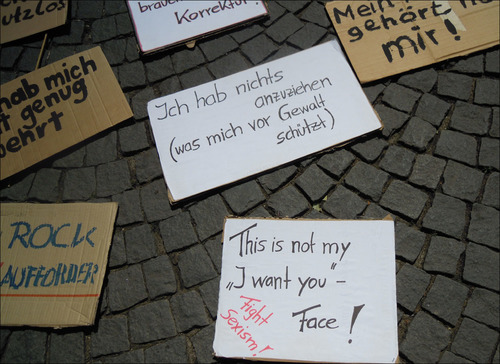 utzlos
brauch
Korrektur!
Mein
gehört
mir!
hab mich
genug
ehrt
Ich hab nichts
anzuziehen
(was mich vor Gewalt
schützt)
ROCK
AUFFORDER
This is not my
„I want you" -
Face!
Fight
Sexism!